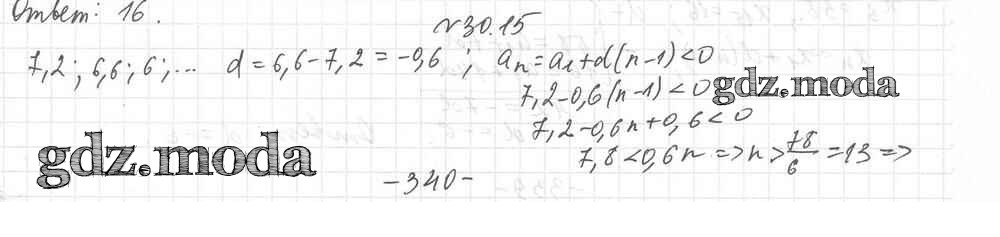 Ответ: 16.
№30.15
7,2; 6,6; 6;... d = 6,6-7,2 = -0,6 ; aₙ = a₁+d(n-1)<0
7,2-0,6(n-1)<0
gdz.moda
7,2-0,6n+0,6<0
gdz.moda
7,8<0,6n => n > 78/6 = 13 =>
-340-